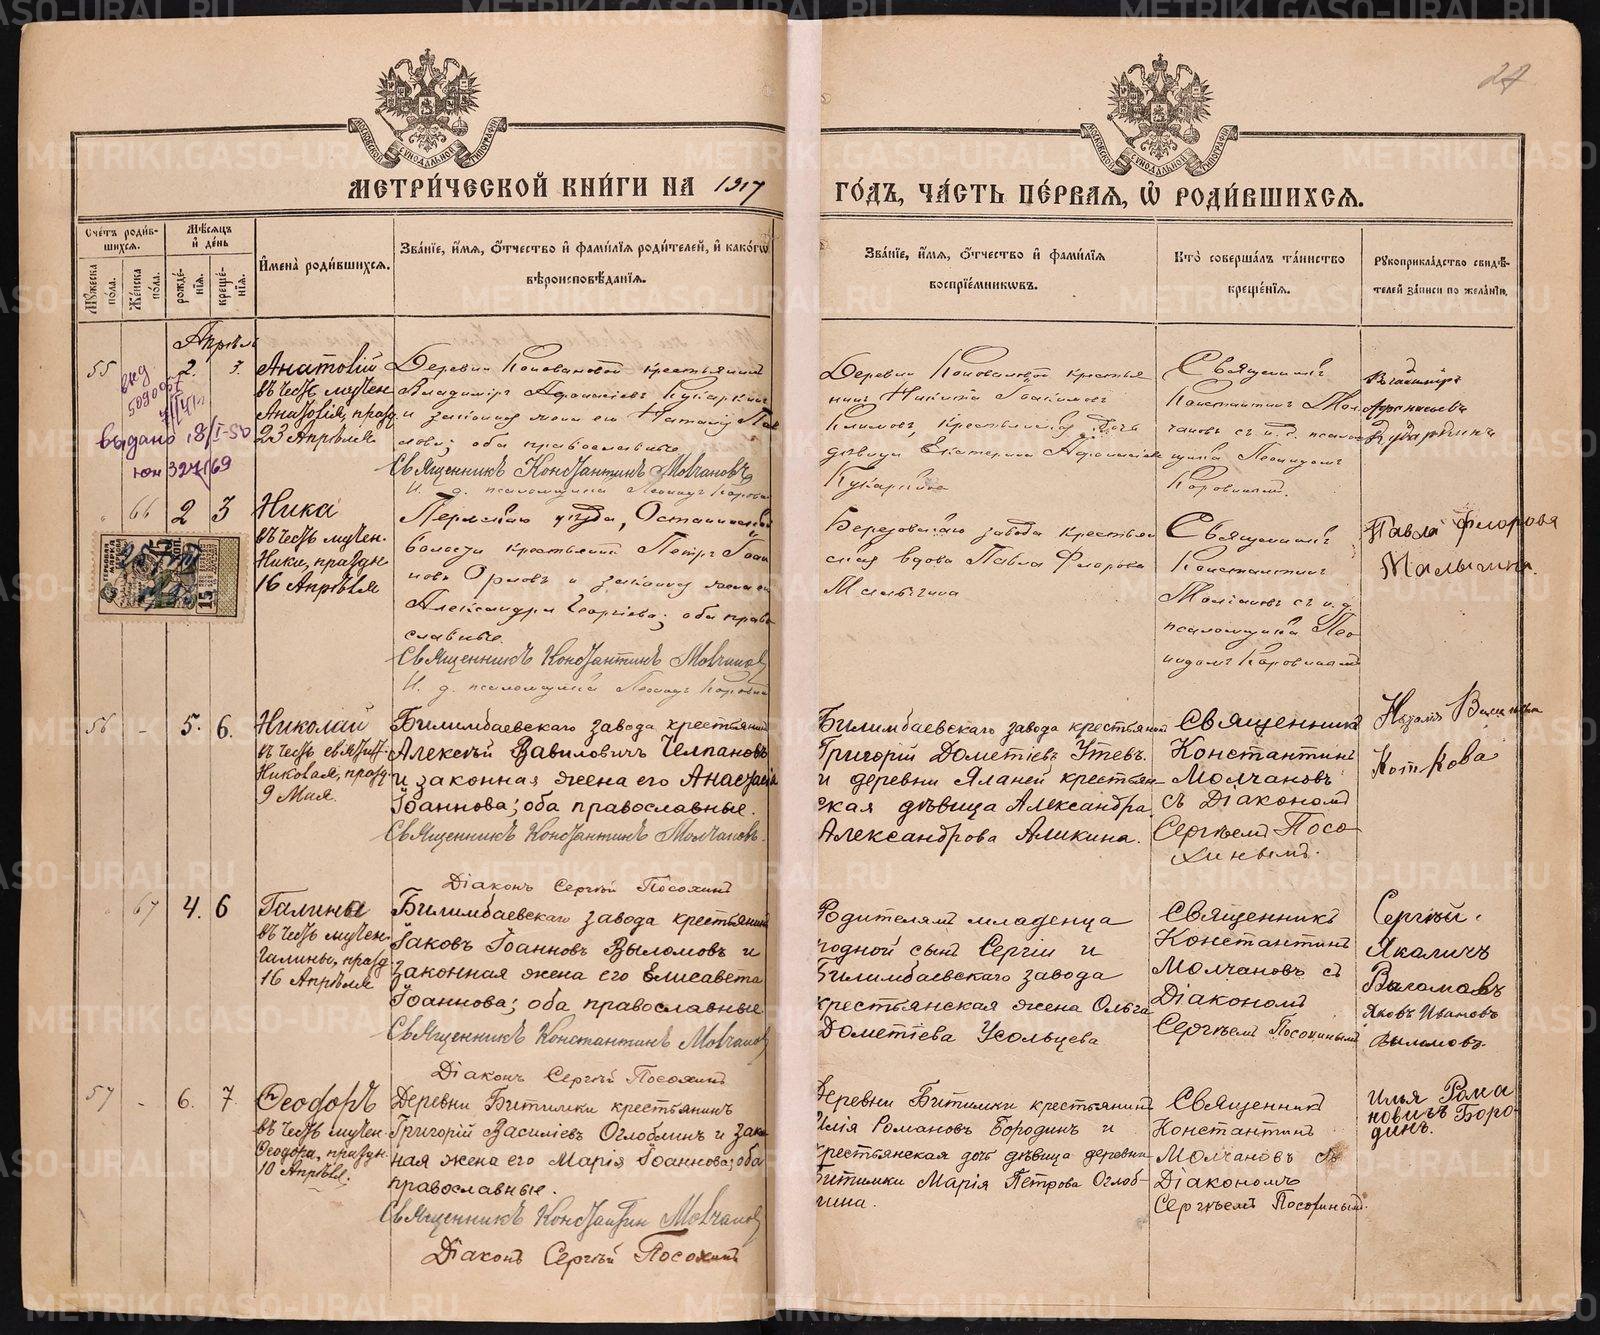 МЕТРИ́ЧЕСКОЙ КНИ́ГИ НА 1917
ГО́ДЪ, ЧА́СТЬ ПЕ́РВАЯ, Ѿ РОДИ́ВШИХСЯ.
27
Сче́тъ роди́в-
шихся.
Му́жеска
по́ла.
Же́нска
по́ла.
Мѣ́сяцъ
и де́нь
рожде́-
нія.
креще́-
нія.
Имена̀ роди́вшихся.
Зва́ніе, и́мя, о́тчество и фами́лія роди́телей, и како́гѡ
вѣроисповѣ́данія.
Зва́ніе, и́мя, о́тчество и фами́лія
воспріе́мниковъ.
Кто̀ соверша́лъ та́инство
креще́нія.
Рукоприкла́дство свидѣ́-
телей за́писи по жела́нію.
Апрѣль
55
2.
3.
Анатолій
въ честь мучен.
Анатолія, празд.
23 Апрѣля
Деревни Коноваловой крестьянинъ
Владиміръ Афонасіевъ Кукаркинъ
и законная жена его Наталія
оба православные
Священникъ Константинъ Молчановъ
И. д. псаломщика Леонидъ Коровинъ
Деревни Коноваловой крестья
нинъ Никита Іоакимовъ
Климовъ, крестьянская дочь
дѣвица Екатерина Афонасіева
Кукаркина
Священникъ
Константинъ Мол
чановъ съ и. д. псалом
щика Леонидомъ
Коровинымъ.
Владиміръ
Афонасьевъ
Кукаркинъ
выдано 18/I-50
юн 327/69
66
2
3
Ника
въ честь мучен.
Ники, праздн.
16 Апрѣля
Пермскаго уѣзда,
волости крестьянинъ Петръ Іоан
новъ Орловъ и законная жена его
Александра Георгіева; оба право
славные.
Священникъ Константинъ Молчановъ
И. д. псаломщика Леонидъ Коровинъ
Березовскаго завода крестьян
ская вдова Павла Флорова
Малыгина
Священникъ
Константинъ
Молчановъ съ и. д.
псаломщика Лео
нидомъ Коровинымъ
Павла Флорова
Малыгина.
15
56
-
5.
6.
Николай
въ честь святит.
Николая, празд.
9 Мая.
Билимбаевскаго завода крестьянинъ
Алексѣй Вавиловичъ Челпановъ
и законная жена его Анастасія
Іоаннова; оба православные.
Священникъ Константинъ Молчановъ.
Діаконъ Сергѣй Посохинъ
Билимбаевскаго завода крестьянинъ
Григорій Дометіевъ Утевъ.
и деревни Яланей крестьян
ская дѣвица Александра
Александрова Аликина.
Священникъ
Константинъ
Молчановъ
съ Діакономъ
Сергѣемъ Посо
хинымъ.
67
4.
6
Галина
въ честь мучен.
Галины, празд.
16 Апрѣля
Билимбаевскаго завода крестьянинъ
Іаковъ Іоанновъ Выломовъ и
законная жена его Елисавета
Іоаннова; оба православные
Священникъ Константинъ Молчановъ
Діаконъ Сергѣй Посохинъ
Родителямъ младенца
родной сынъ Сергій и
Билимбаевскаго завода
крестьянская жена Ольга
Дометіева Усольцева
Священникъ
Константинъ
Молчановъ съ
Діакономъ
Сергѣемъ Посохинымъ
Сергѣй
Выломовъ
Яковъ Ивановъ
Выломовъ.
57
-
6.
7.
Ѳеодоръ
въ честь мучен.
Ѳеодора, праздн.
10 Апрѣля.
Деревни Битимки крестьянинъ
Григорій Василіевъ Оглоблинъ и зако
ная жена его Марія Іоаннова; оба
православные.
Священникъ Константинъ Молчановъ
Діаконъ Сергѣй Посохинъ
Деревни Битимки крестьянинъ
Илія Романовъ Бородинъ и
крестьянская дочь дѣвица деревни
Битимки Марія Петрова Оглоб-
лина.
Священникъ
Константинъ
Молчановъ съ
Діакономъ
Сергѣемъ Посохинымъ.
Илья Рома
новичъ Боро-
динъ.
METRIKI.GASO-URAL.RU